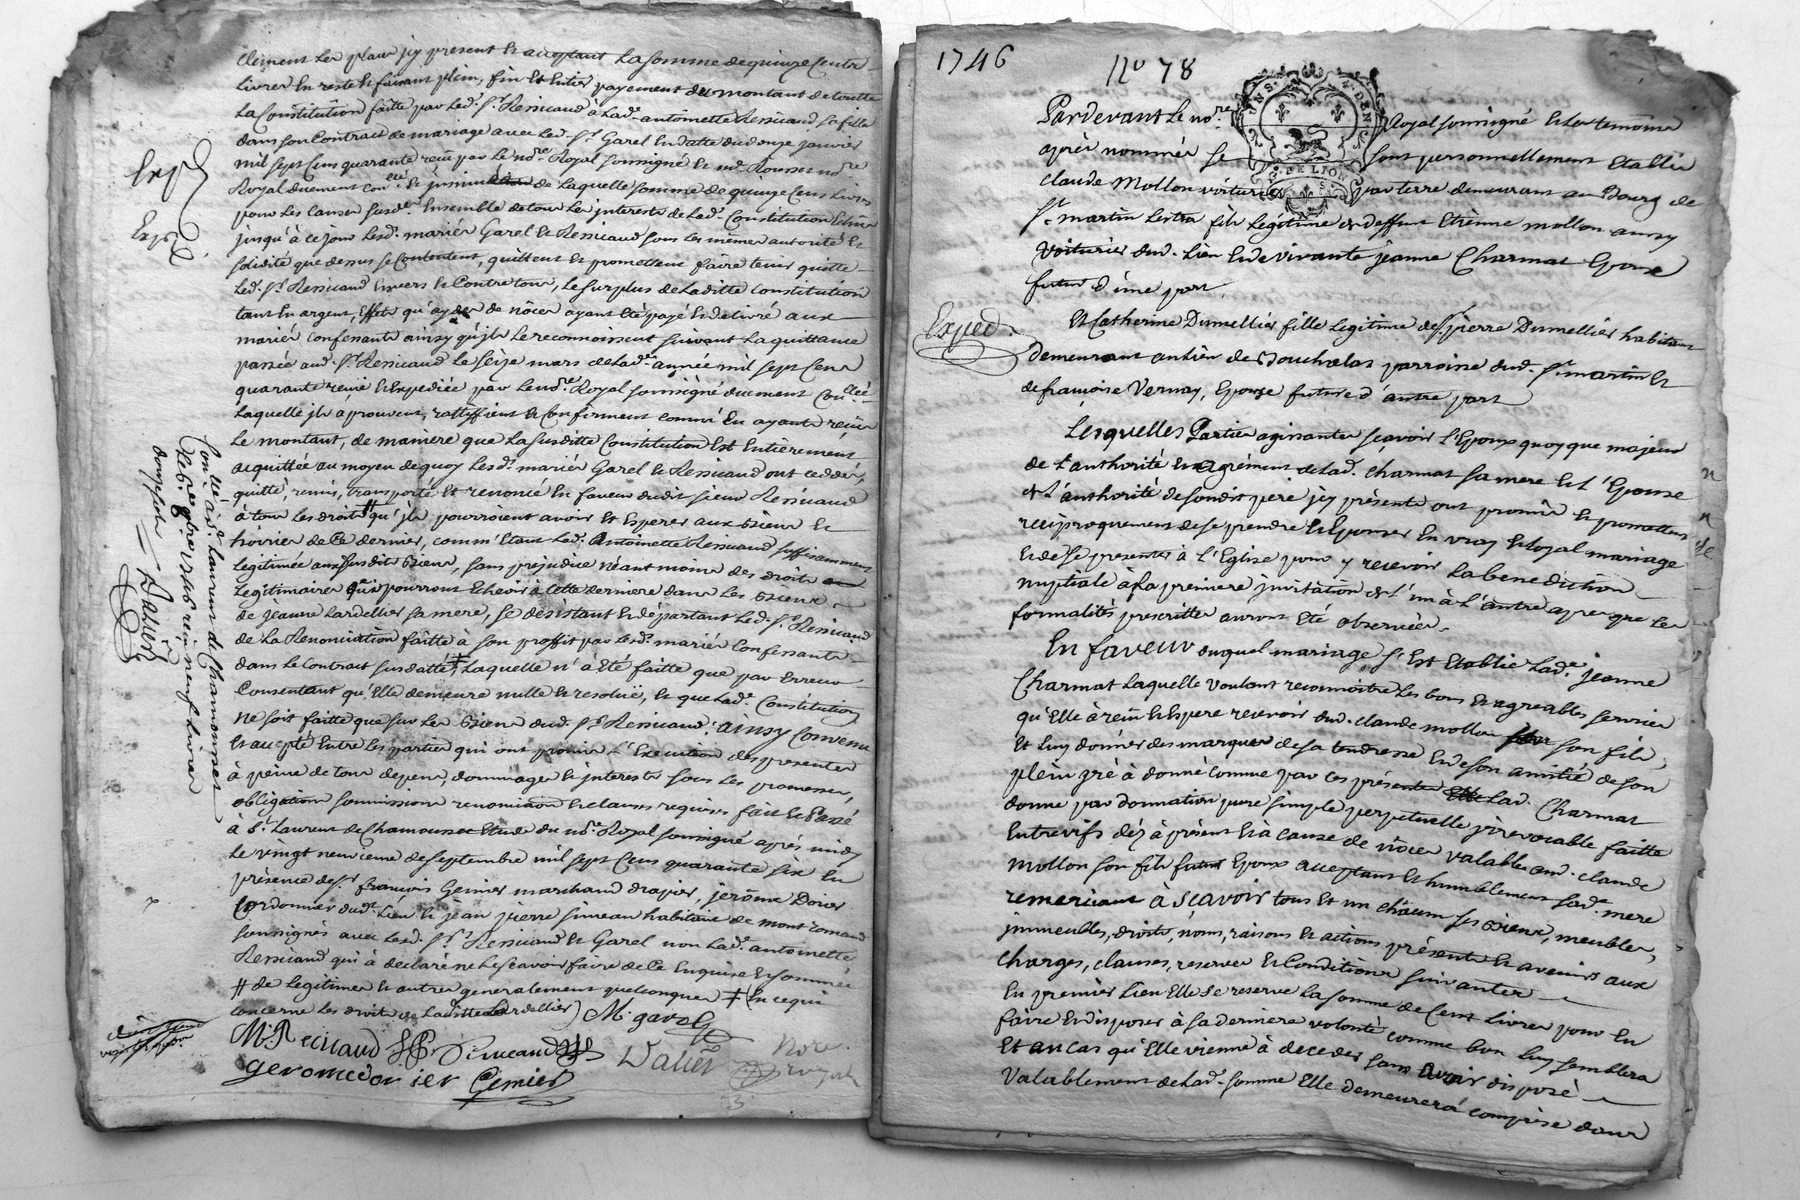 Clement Les place icy present et acceptant La somme de quinze Cents
Livres En reste et faisant plein, fin Et Entier payement du montant de toutte
La Constitution faitte par Led. Sr. Ressicaud à Lad. antoinette Ressicaud sa fille
dans son Contract de mariage avec Led. Sr. Garel En datte du onze janvier
mil sept Cens quarante reçu par Le nore. Royal soussigné Et me. Rousset nore.
Royal duement conlé et insinué de Laquelle somme de quinze Cens Livres
pour Les causes susdes. Ensemble de tous Les interests de Lad. Constitution
jusqu'à ce jour Lesd. mariés Garel Et Ressicaud sous Les mêmes autorité Et
solidité que dessus se Contentent, quittent Et promettent faire tenir quitte
Led. Sr. Ressicaud Envers Et Contre tous, Le surplus de Laditte Constitution
tant En argent, Effets qu'ayant Eté payé Et délivré aux
mariés confessants ainsy qu'ils Le reconnoissent suivant La quittance
passée aud. Sr. Ressicaud Le seize mars de Lad. année mil sept Cens
quarante reçüe Et Expediée par Led. nore. Royal soussigné duement Conlée
Laquelle ils aprouvent, rattiffient Et Confirment comme En ayants reçu
Le montant, de maniere que La susditte Constitution Est Entierement
acquittée au moyen de quoy Lesd. mariés Garel Et Ressicaud ont ceddés,
quitté, remis, transporté Et renoncé En faveur dudit sieur Ressicaud
à tous Les droits qu'ils pourroient avoir Et Esperer aux Biens Et
hoirie de Ce dernier, comm'Etant Lad. Antoinette Ressicaud suffisamment
Legitimée aux susdits Biens, sans préjudice néantmoins des droits
Legitimaires qui pourront Echeoir à Cette derniere dans Les Biens
de jeanne Lardellier sa mere, se désistant Et départant Led. Sr. Ressicaud
de La Renonciation faitte à son proffit par Lesd. mariés Confessants
dans Le Contract susdatté, Laquelle n'a Eté faitte que par Erreur
Consentant qu'Elle demeure nulle Et resoluë, Et que Lad. Constitution
ne soit faitte que sur Les Biens dud. Sr. Ressicaud. ainsy Convenu
Et accepté Entre Les parties qui ont promis L'Execution des presentes
à peine de tous depens, dommages Et interests sous Les promesses,
obligations soumissions renonciation Et clauses requises fait Et Passé
à St. Laurent de Chamousset Etude du nore. Royal soussigné après midy
Le vingt neuvieme de septembre mil sept Cens quarante six En
présence de Sr. françois Gemier marchand drapier, jerôme Dorier
Cordonnier dud. Lieu Et jean pierre simean habitant de montromand
soussignés avec Lesd. Srs. Ressicaud Et Garel non Lad. antoinette
Ressicaud qui à déclaré ne Le scavoir faire de Ce Enquise Et sommée
# de Legitimes Et autres generalement quelconques # (En cequi
concerne Les droits de Laditte Lardellier) M. garel
M. Recicaud Simeand Dalier Nore.
geromedorier Gemier royal
Exp.
Exped.
Conlé. à St. Laurent de Chamousset
Le 6e. 8bre 1746 reçu neuf Livres
Dalier
1746
No 78
Pardevant Le nore. Royal soussigné Et Les temoins
après nommés se sont personnellement Etablis
claude Mollon voiturier par terre demeurant au Bourg de
St. martin Lestra fils Légitime de deffunt Etienne mollon aussy
voiturier dud. Lieu Et de vivante jeanne Charmat Epoux
futur d'une part,
Exped.
Et Catherine Dumellier fille Legitime de Sr. pierre Dumellier habitant
demeurant au Lieu de Bouchalas parroisse dud. St. martin Et
de françoise Vernay, Epouze future d'autre part
Lesquelles Parties agissantes sçavoir L'Epoux quoy que majeur
de L'authorité Et agrément de Lad. Charmat sa mere Et L'Epouse
de L'authorité de sondit pere icy présents ont promis Et promettent
reciproquement de se prendre Et Epouser En vray Et Loyal mariage
Et de se presenter à L'Eglise pour y recevoir La benediction
nuptiale à La premiere invitation de L'un à L'autre apres que Les
formalités prescrittes auront Eté observées.
En faveur duquel mariage s'Est Etablie Lade. jeanne
Charmat Laquelle voulant reconnoistre Les bons Et agreables services
qu'Elle à reçu Et Espere recevoir dud. claude mollon son fils,
Et Luy donner des marques de sa tendresse Et de son amitié de son
plein gré à donné comme par ces présentes Lad. Charmat
donne par donnation pure simple perpetuelle irrevocable faitte
Entrevifs dez à présent Et à cause de nôces valable aud. claude
mollon son fils futur Epoux acceptant Et humblement Sade. mere
remerciant à sçavoir tous Et un châcun ses Biens, meubles,
immeubles, droits, noms, raisons Et actions présents Et avenirs aux
Charges, clauses, reserves Et Conditions suivantes
En premier Lieu Elle se reserve La somme de Cent Livres pour En
faire Et disposer à sa derniere volonté comme bon Luy semblera
Et au cas qu'Elle vienne à deceder sans avoir disposé
valablement de Lad. somme Elle demeurera comprise dans